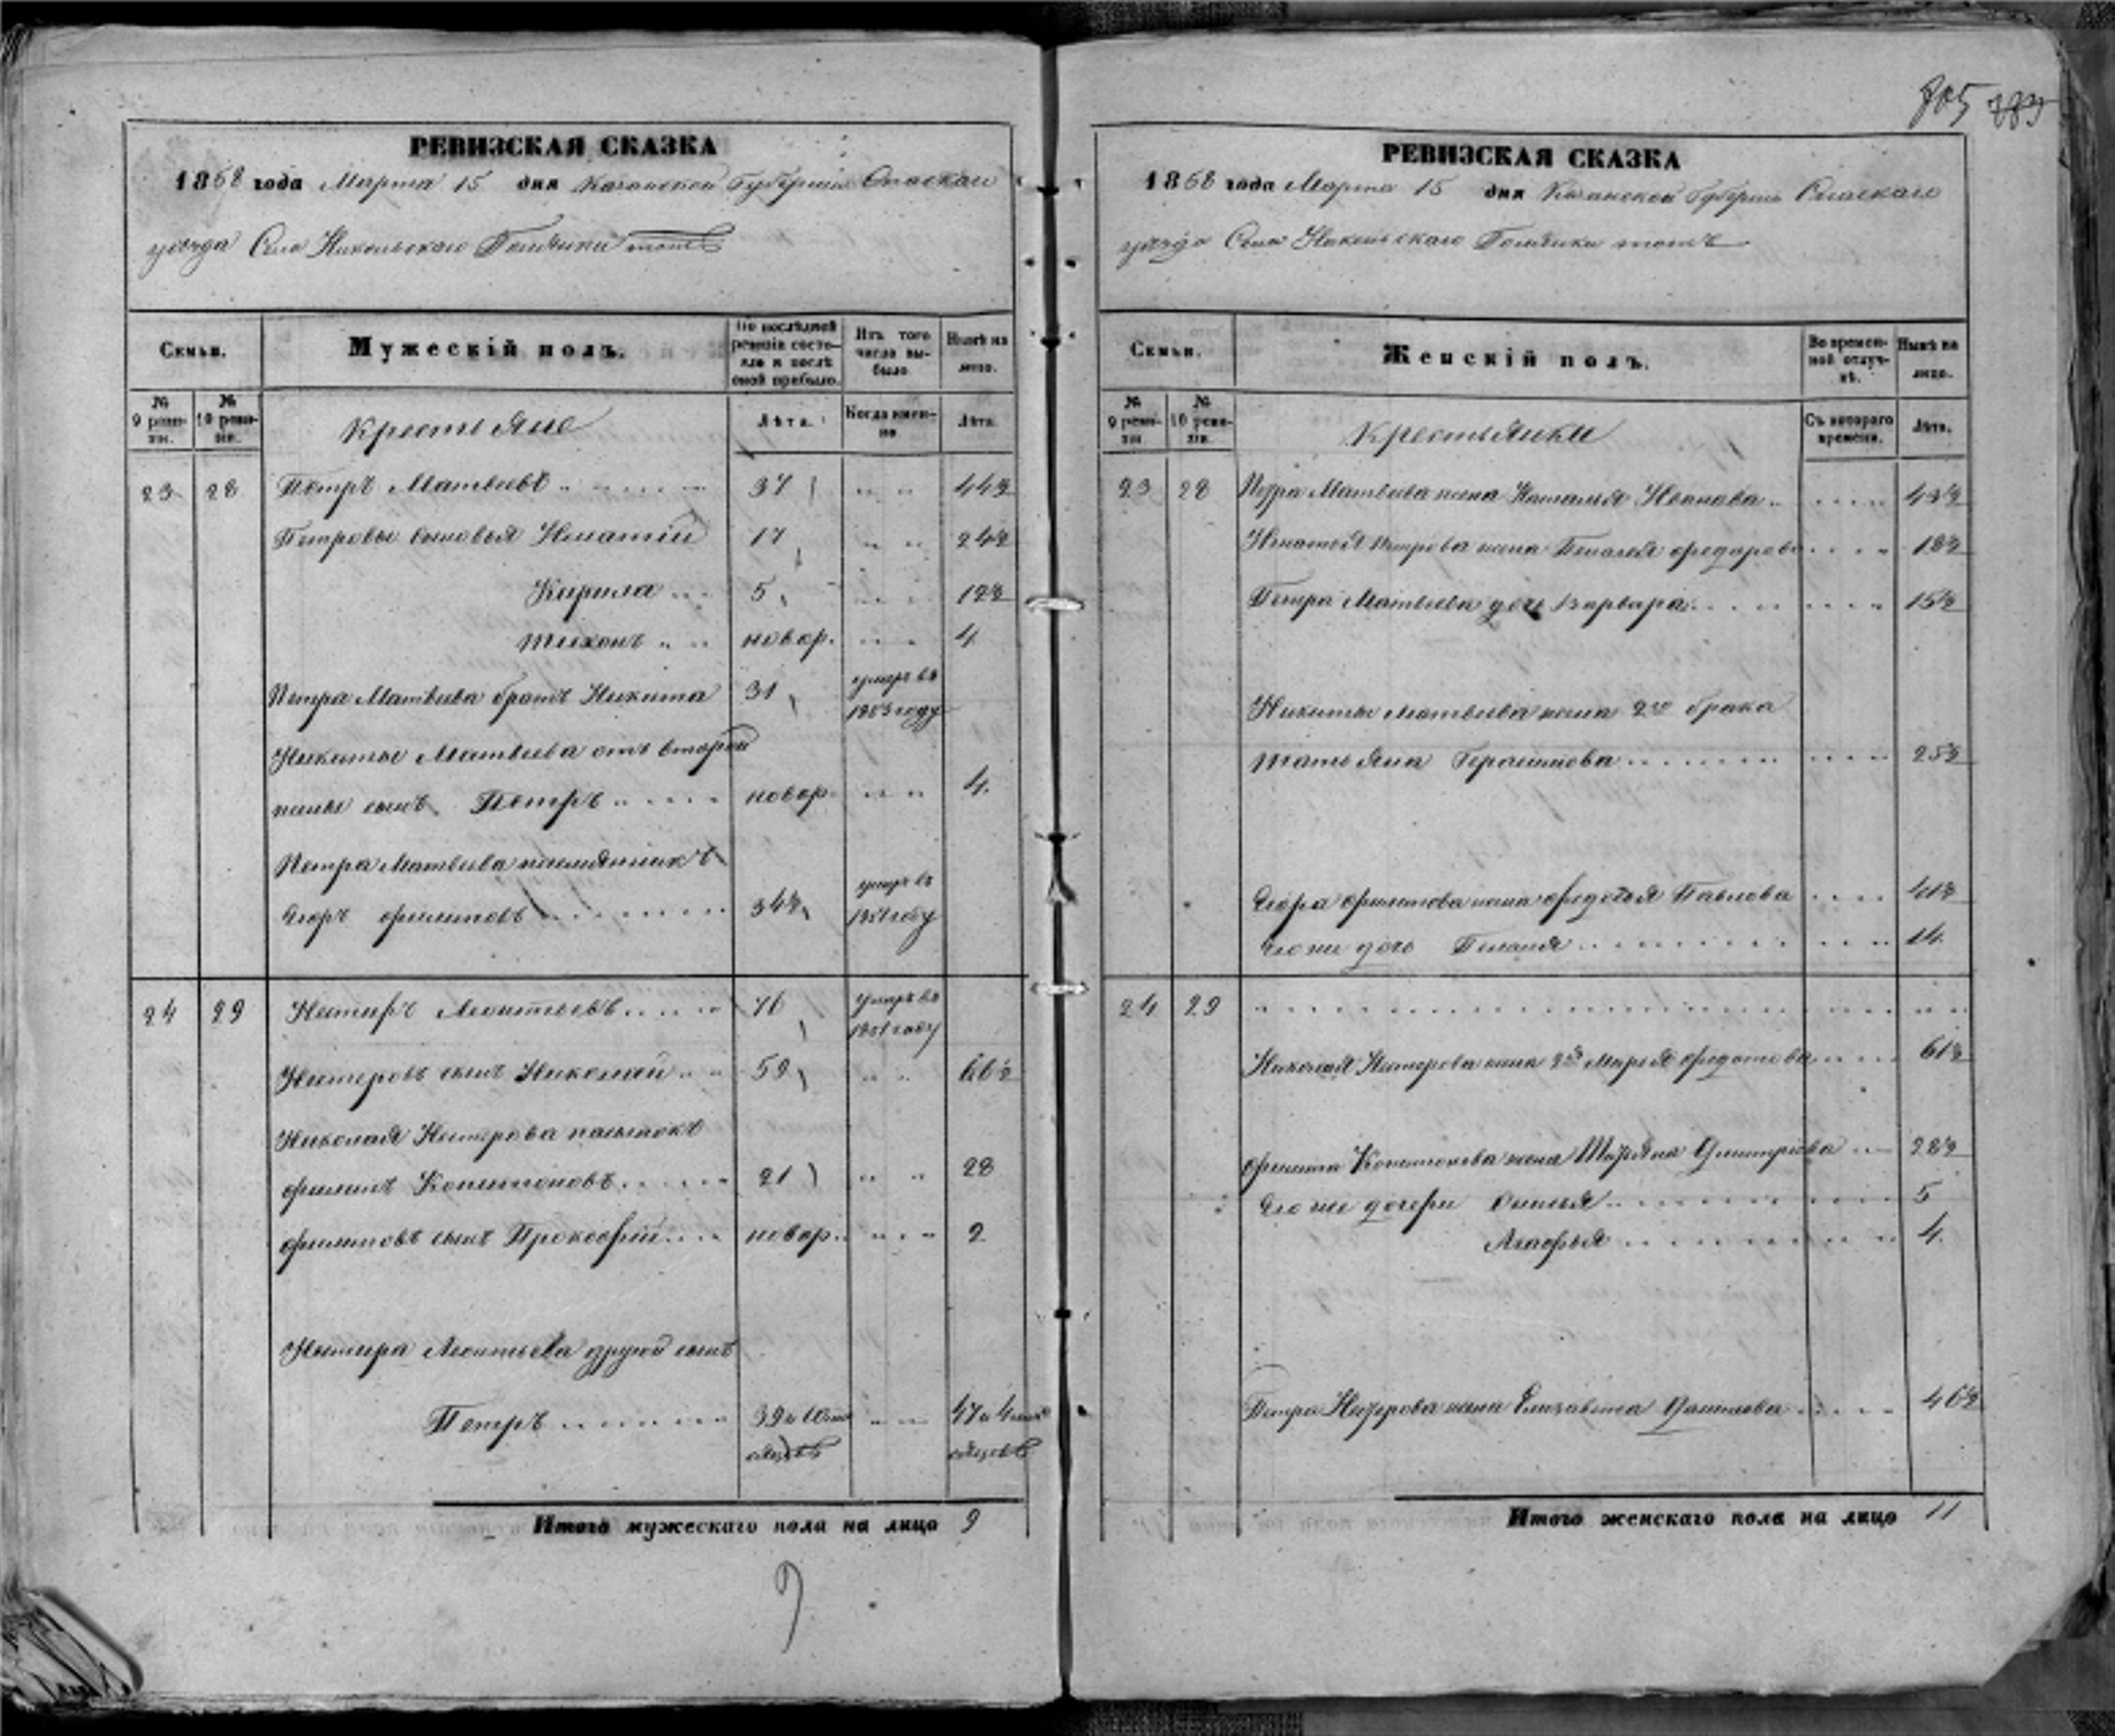 805 783
РЕВИЗСКАЯ СКАЗКА
1858 года Марта 15 дня Казанской Губернии Спаскаго
уезда Села Никольскаго тожъ
Семьи.
Мужескій полъ.
По послѣдней ревизіи состояло и послѣ оной прибыло.
Изъ того числа выбыло.
Нынѣ на лицо.
№ 9 ревизіи.
№ 10 ревизіи.
Крестьяне
Лѣта.
Когда именно.
Лѣта.
23 28 Петръ Матвѣевъ 37 44½
Петровы сыновья Игнатій 17 24½
Кирила 5 12½
Тихонъ новор. 4
Петра Матвѣева братъ Никита 31 умеръ въ
1853 году
Никиты Матвѣева отъ второй
жены сынъ Петръ новор. 4
Петра Матвѣева племянникъ
Егоръ Филиповъ 34½ умеръ въ
1851 году
24 29 Нестеръ Леонтьевъ 76 умеръ въ
1851 году
Нестеровъ сынъ Николай 59 66½
Николая Нестерова пасынокъ
Филипъ Капитоновъ 21 28
Филиповъ сынъ Прокофій новор. 2
Нестера Леонтьева другой сынъ
Петръ 39 и 10 47 и 4
мѣсяцовъ мѣсяцовъ
Итого мужескаго пола на лицо 9
9
РЕВИЗСКАЯ СКАЗКА
1858 года Марта 15 дня Казанской Губерніи Спаскаго
уезда Села Никольскаго тожъ
Семьи.
Женскій полъ.
Во временной отлучкѣ.
Нынѣ на лицо.
№ 9 ревизіи.
№ 10 ревизіи.
Крестьянки
Съ котораго времени.
Лѣта.
23 28 Петра Матвѣева жена Наталья Иванова 43½
Игнатья Петрова жена Пелагея 18½
Петра Матвѣева дочь Варвара 15½
Никиты Матвѣева жена 2го брака
Татьяна Герасимова 25½
Егора Филипова жена Федосья Павлова 41½
Его же дочь Пелагея 14
24 29
Николая Нестерова жена 2я Марья Федотова 61½
Филипа Капитонова жена Дмитриева 28½
Его же дочери 5
4
Петра Нестерова жена Елизавета 46½
Итого женскаго пола на лицо 11